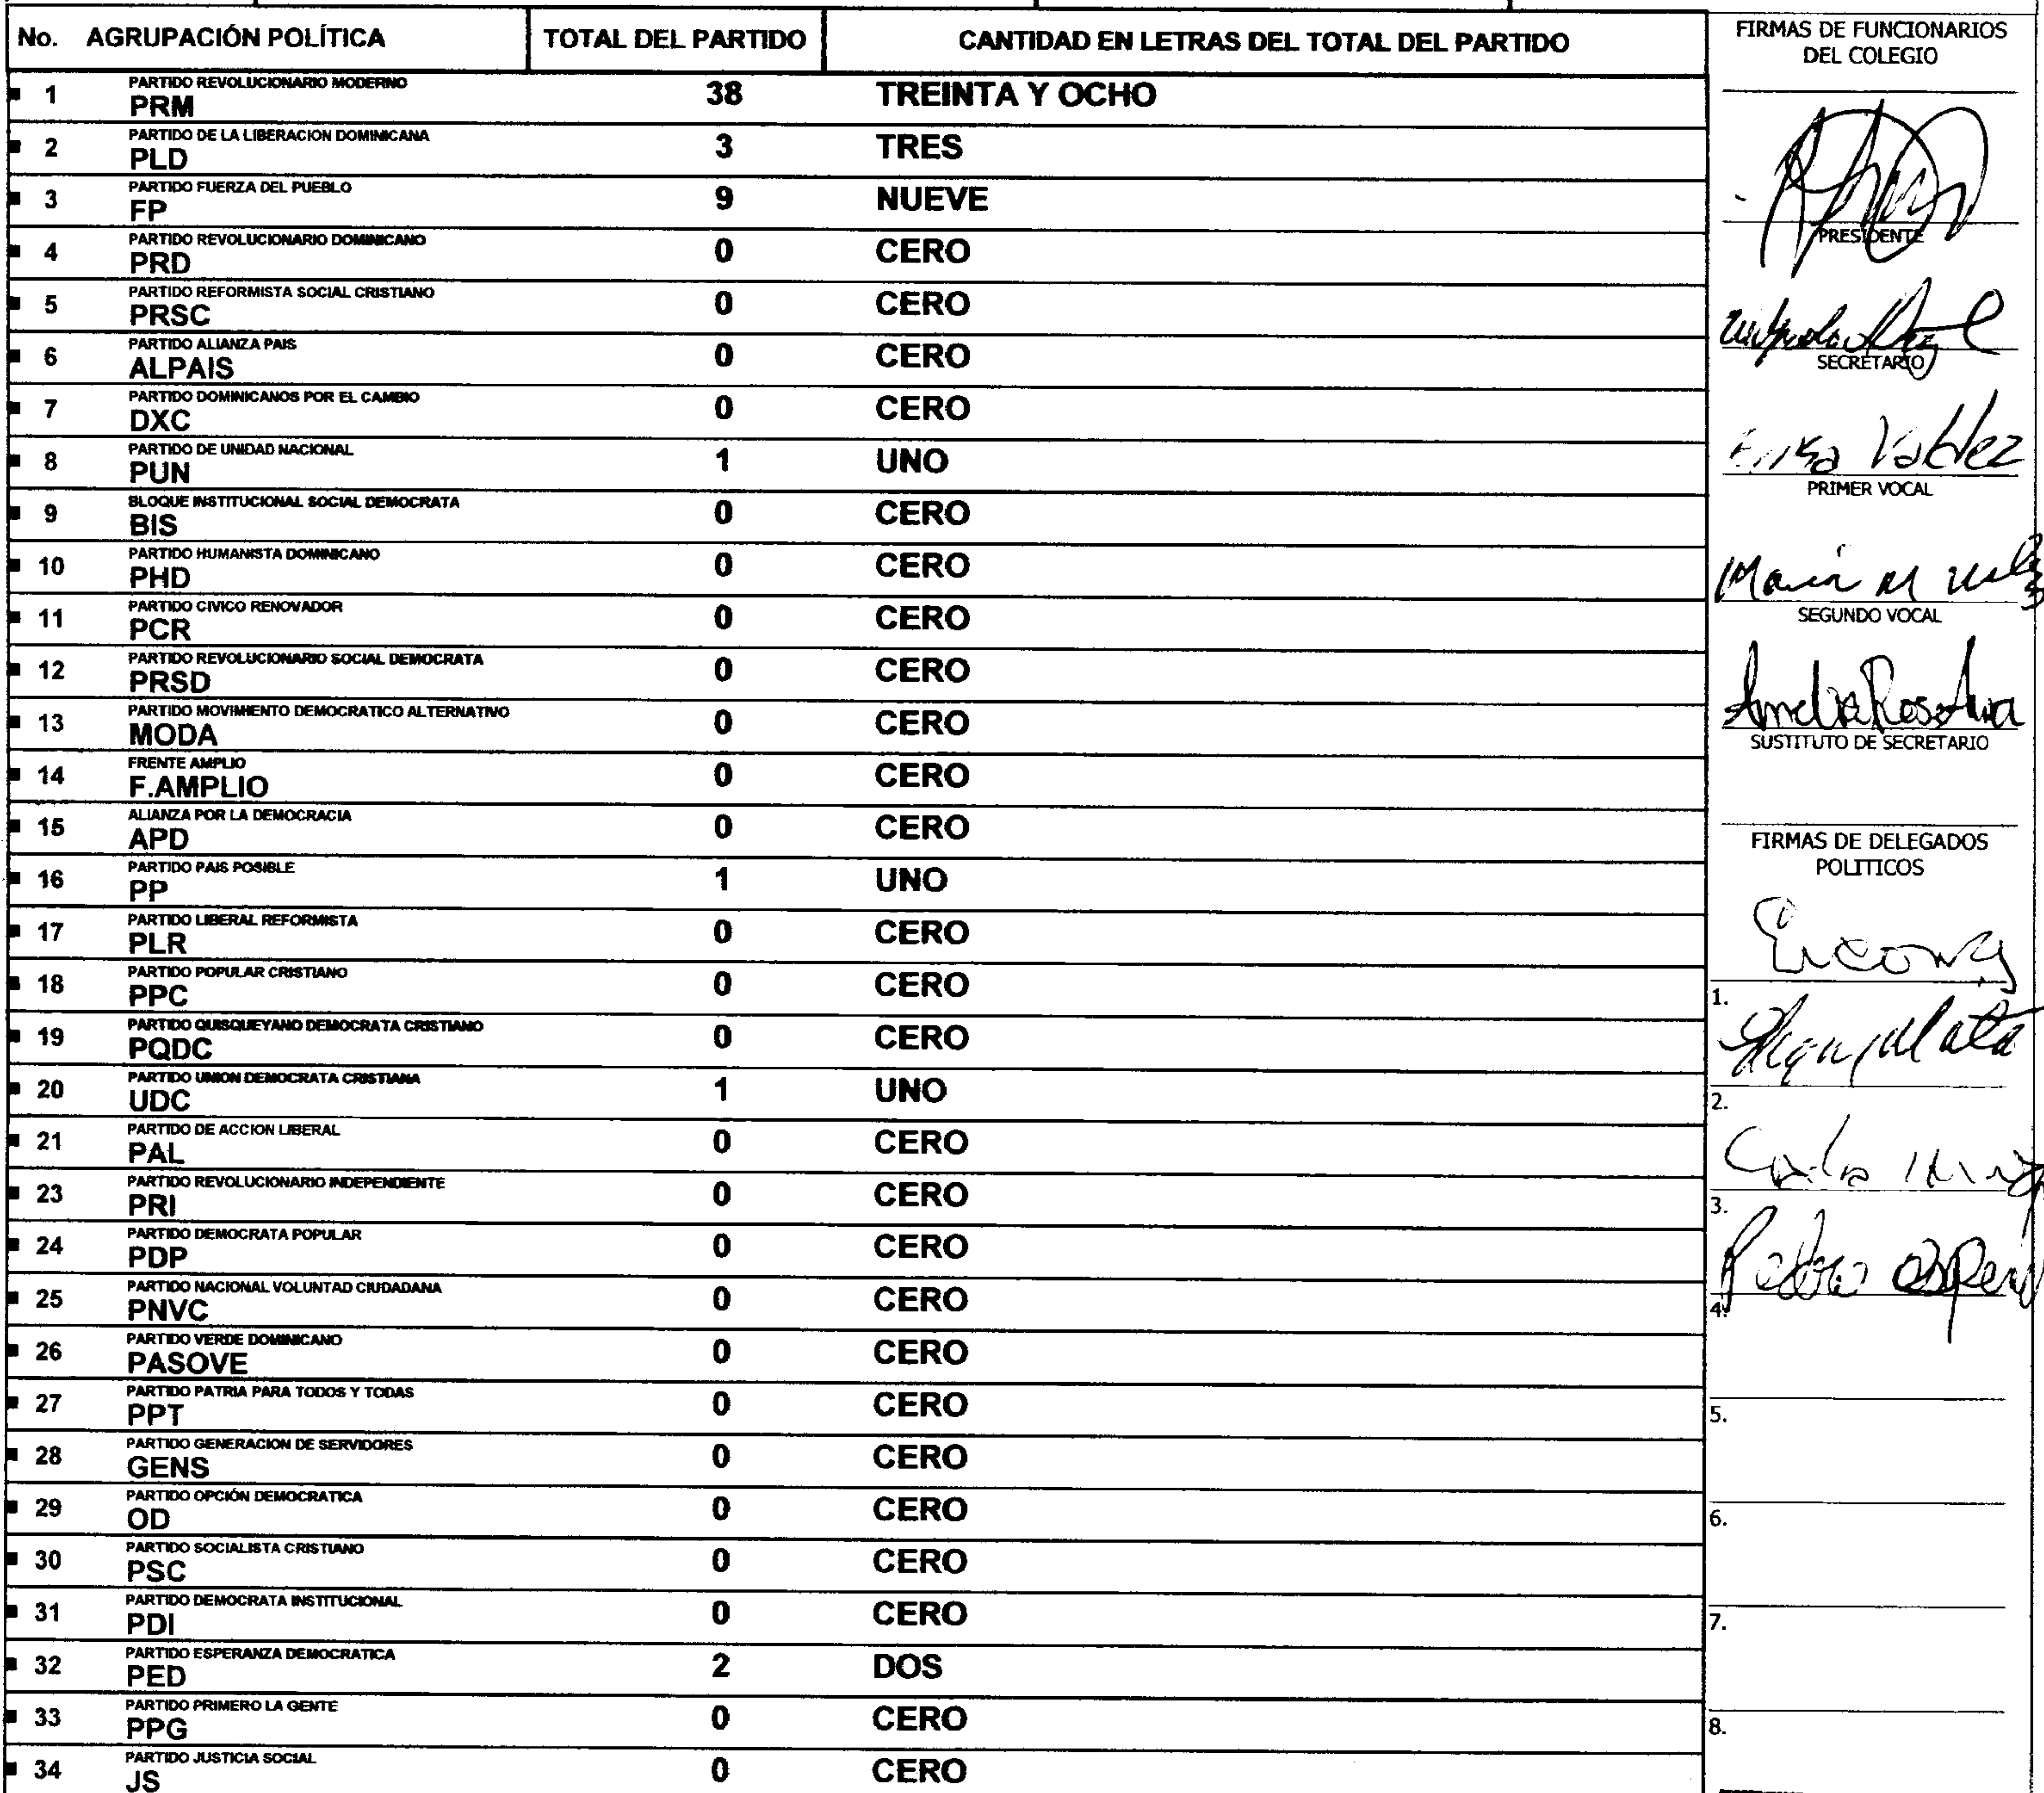 No. AGRUPACIÓN POLÍTICA TOTAL DEL PARTIDO CANTIDAD EN LETRAS DEL TOTAL DEL PARTIDO
PARTIDO REVOLUCIONARIO MODERNO
1 PRM 38 TREINTA Y OCHO
PARTIDO DE LA LIBERACION DOMINICANA
2 PLD 3 TRES
PARTIDO FUERZA DEL PUEBLO
3 FP 9 NUEVE
PARTIDO REVOLUCIONARIO DOMINICANO
4 PRD 0 CERO
PARTIDO REFORMISTA SOCIAL CRISTIANO
5 PRSC 0 CERO
PARTIDO ALIANZA PAIS
6 ALPAIS 0 CERO
PARTIDO DOMINICANOS POR EL CAMBIO
7 DXC 0 CERO
PARTIDO DE UNIDAD NACIONAL
8 PUN 1 UNO
BLOQUE INSTITUCIONAL SOCIAL DEMOCRATA
9 BIS 0 CERO
PARTIDO HUMANISTA DOMINICANO
10 PHD 0 CERO
PARTIDO CIVICO RENOVADOR
11 PCR 0 CERO
PARTIDO REVOLUCIONARIO SOCIAL DEMOCRATA
12 PRSD 0 CERO
PARTIDO MOVIMIENTO DEMOCRATICO ALTERNATIVO
13 MODA 0 CERO
FRENTE AMPLIO
14 F.AMPLIO 0 CERO
ALIANZA POR LA DEMOCRACIA
15 APD 0 CERO
PARTIDO PAIS POSIBLE
16 PP 1 UNO
PARTIDO LIBERAL REFORMISTA
17 PLR 0 CERO
PARTIDO POPULAR CRISTIANO
18 PPC 0 CERO
PARTIDO QUISQUEYANO DEMOCRATA CRISTIANO
19 PQDC 0 CERO
PARTIDO UNION DEMOCRATA CRISTIANA
20 UDC 1 UNO
PARTIDO DE ACCION LIBERAL
21 PAL 0 CERO
PARTIDO REVOLUCIONARIO INDEPENDIENTE
23 PRI 0 CERO
PARTIDO DEMOCRATA POPULAR
24 PDP 0 CERO
PARTIDO NACIONAL VOLUNTAD CIUDADANA
25 PNVC 0 CERO
PARTIDO VERDE DOMINICANO
26 PASOVE 0 CERO
PARTIDO PATRIA PARA TODOS Y TODAS
27 PPT 0 CERO
PARTIDO GENERACION DE SERVIDORES
28 GENS 0 CERO
PARTIDO OPCIÓN DEMOCRATICA
29 OD 0 CERO
PARTIDO SOCIALISTA CRISTIANO
30 PSC 0 CERO
PARTIDO DEMOCRATA INSTITUCIONAL
31 PDI 0 CERO
PARTIDO ESPERANZA DEMOCRATICA
32 PED 2 DOS
PARTIDO PRIMERO LA GENTE
33 PPG 0 CERO
PARTIDO JUSTICIA SOCIAL
34 JS 0 CERO
FIRMAS DE FUNCIONARIOS
DEL COLEGIO
PRESIDENTE
SECRETARIO
PRIMER VOCAL
SEGUNDO VOCAL
SUSTITUTO DE SECRETARIO
FIRMAS DE DELEGADOS
POLITICOS
1.
2.
3.
4.
5.
6.
7.
8.